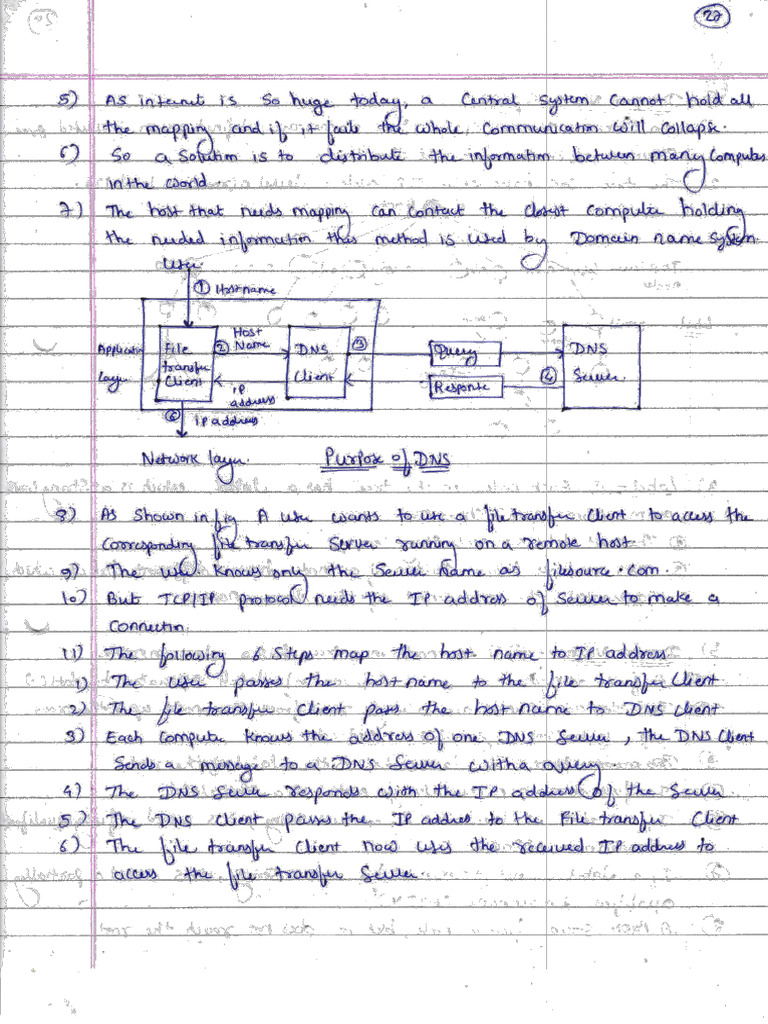 27
5) As internet is so huge today, a Central system cannot hold all
the mapping and if it fails the whole communication will collapse.
6) So a solution is to distribute the information between many computes
in the world
7) The host that needs mapping can contact the closest compute holding
the needed information this method is used by Domain name system.
User
① Hostname
Application layer
File transfer Client
② Host Name
IP address
DNS Client
③
Query
Response
④
DNS Server.
⑥ IP address
Network layer.
Purpose of DNS
8) As shown in fig A user wants to use a file transfer client to access the
corresponding file transfer server running on a remote host.
9) The user knows only the server name as filesource.com.
10) But TCP/IP protocol needs the IP address of server to make a
connection.
11) The following 6 steps map the host name to IP address
1) The user passes the host name to the file transfer client
2) The file transfer client pass the host name to DNS client
3) Each compute knows the address of one DNS server, the DNS client
sends a message to a DNS server with a query.
4) The DNS server responds with the IP address of the server
5) The DNS client passes the IP address to the File transfer client
6) The file transfer client now uses the received IP address to
access the file transfer server.